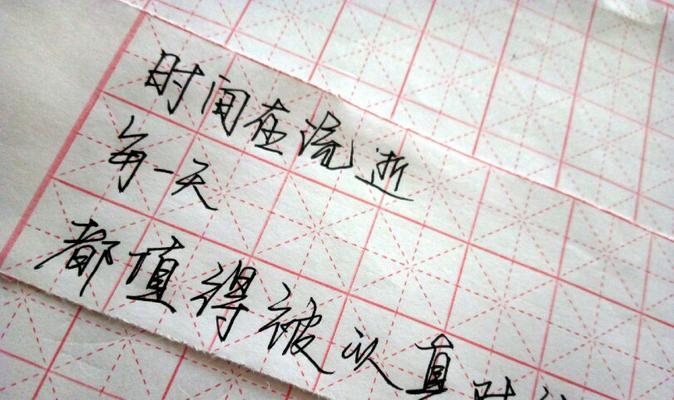 时间在流逝
每一天
都值得被认真对